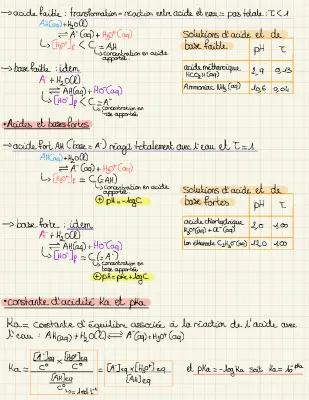 → acide faible : transformation = réaction entre acide et eau = pas totale : τ < 1
AH(aq) + H₂O(l)
⇌ A⁻(aq) + H₃O⁺(aq)
↳ [H₃O⁺]f < C = AH
↳ concentration en acide apportée
→ base faible : idem
A⁻ + H₂O(l)
⇌ AH(aq) + HO⁻(aq)
↳ [HO⁻]f < C = A⁻
↳ concentration en base apportée
Solutions d'acide et de base faible | pH | τ
acide méthanoïque HCO₂H(aq) | 2,9 | 0,13
Ammoniac NH₃(aq) | 10,6 | 0,04
• Acides et bases fortes
→ acide fort AH (base = A⁻) réagit totalement avec l'eau et τ = 1
AH(aq) + H₂O(l)
⇌ A⁻(aq) + H₃O⁺(aq)
↳ [H₃O⁺]f = C (=AH)
↳ concentration en acide apportée
⊕ pH = -log C
→ base forte : idem
A⁻ + H₂O(l)
⇌ AH(aq) + HO⁻(aq)
↳ [HO⁻]f = C (=A⁻)
↳ concentration en base apportée
⊕ pH = pKe + log C
Solutions d'acide et de base fortes | pH | τ
acide chlorhydrique H₃O⁺(aq) + Cl⁻(aq) | 2,0 | 1,00
Ion éthanolate C₂H₅O⁻(aq) | 12,0 | 1,00
• constante d'acidité Ka et pKa
Ka = constante d'équilibre associée à la réaction de l'acide avec
l'eau : AH(aq) + H₂O(l) ⇌ A⁻(aq) + H₃O⁺(aq)
Ka = ([A⁻]éq / C° × [H₃O⁺]éq / C°) / ([AH]éq / C°) = [A⁻]éq × [H₃O⁺]éq / [AH]éq et pKa = -log Ka soit Ka = 10^-pKa
↳ = 1 mol·L⁻¹